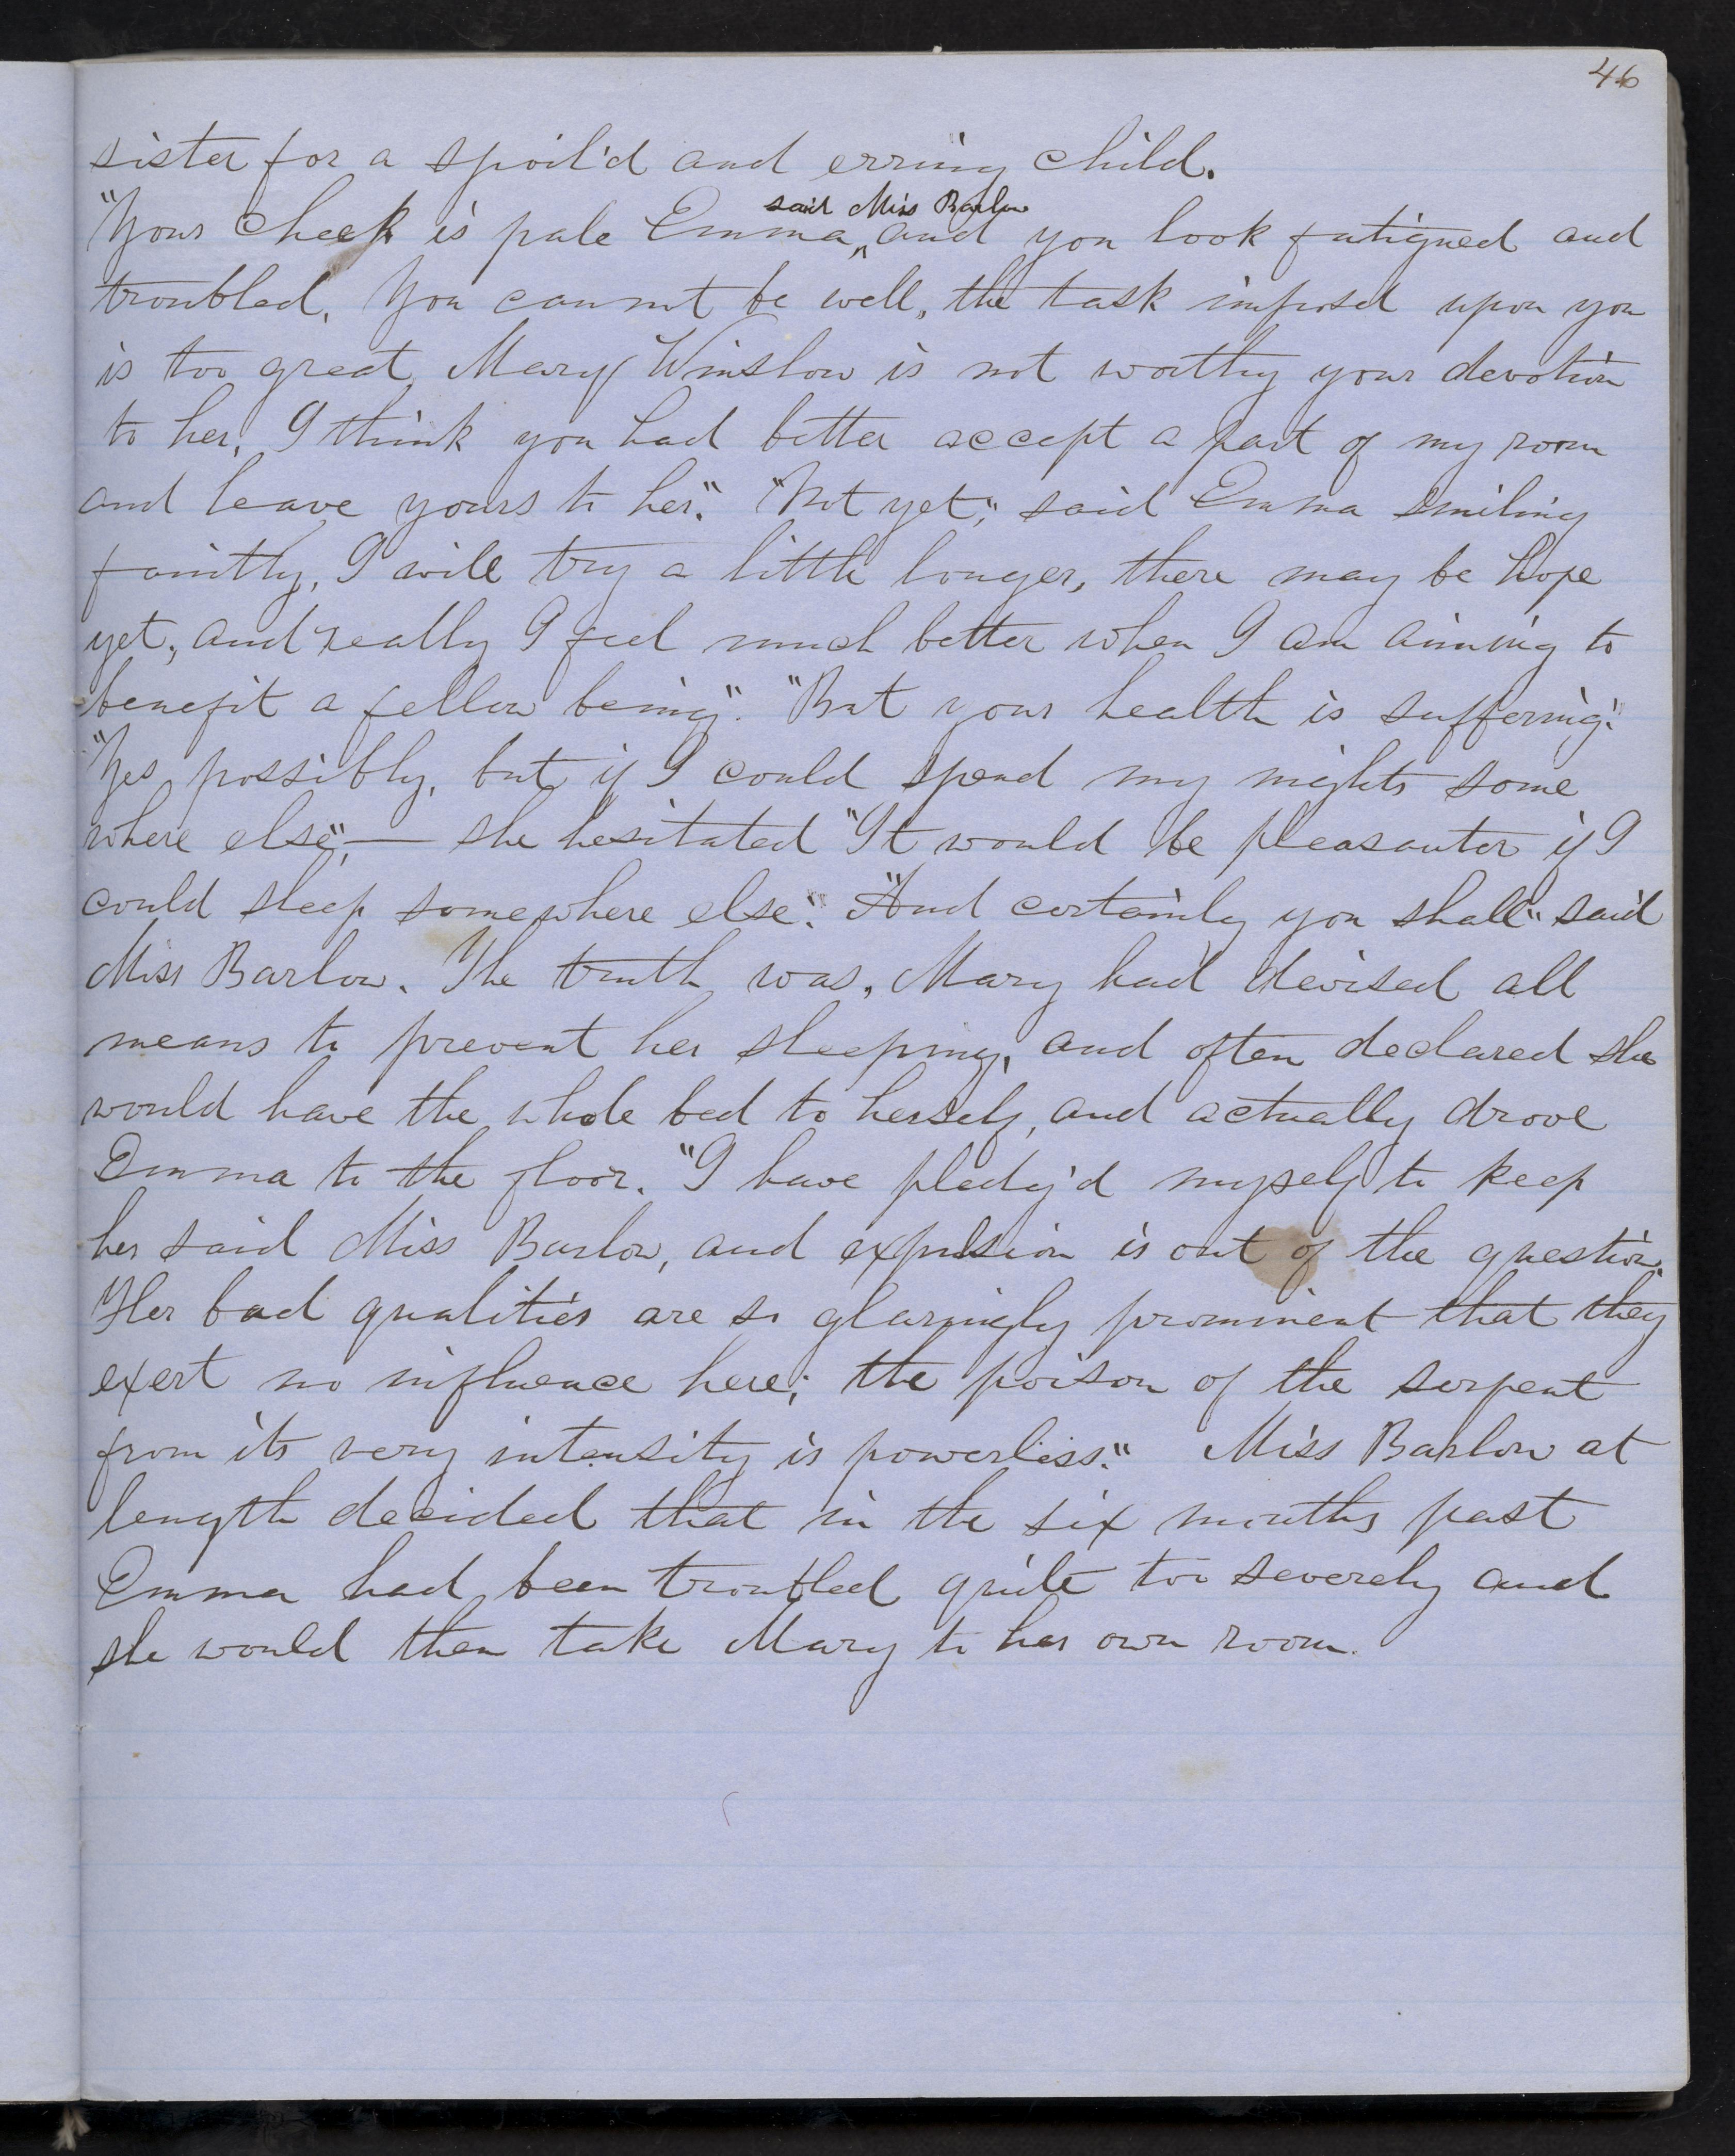 46
sister for a spoil'd and erring child.
said Miss Barlow
"Your cheek is pale Emma, ^ and you look fatigued and
troubled, You cannot be well, the task imposed upon you
is too great, Mary Winslow is not worthy your devotion
to her, I think you had better accept a part of my room
and leave yours to her". "Not yet", said Emma smiling
faintly, I will try a little longer, there may be hope
yet, and really I feel much better when I am aiming to
benefit a fellow being". "But your health is suffering".
"Yes possibly, but if I could spend my nights some
where else", — she hesitated "It would be pleasanter if I
could sleep somewhere else". "And certainly you shall" said
Miss Barlow. The truth was, Mary had devised all
means to prevent her sleeping, and often declared she
would have the whole bed to herself, and actually drove
Emma to the floor. "I have pledg'd myself to keep
her said Miss Barlow, and expulsion is out of the question.
Her bad qualities are so glaringly prominent that they
exert no influence here; the poison of the serpent
from its very intensity is powerless." Miss Barlow at
length decided that in the six months past
Emma had been troubled quite too severely and
she would then take Mary to her own room.